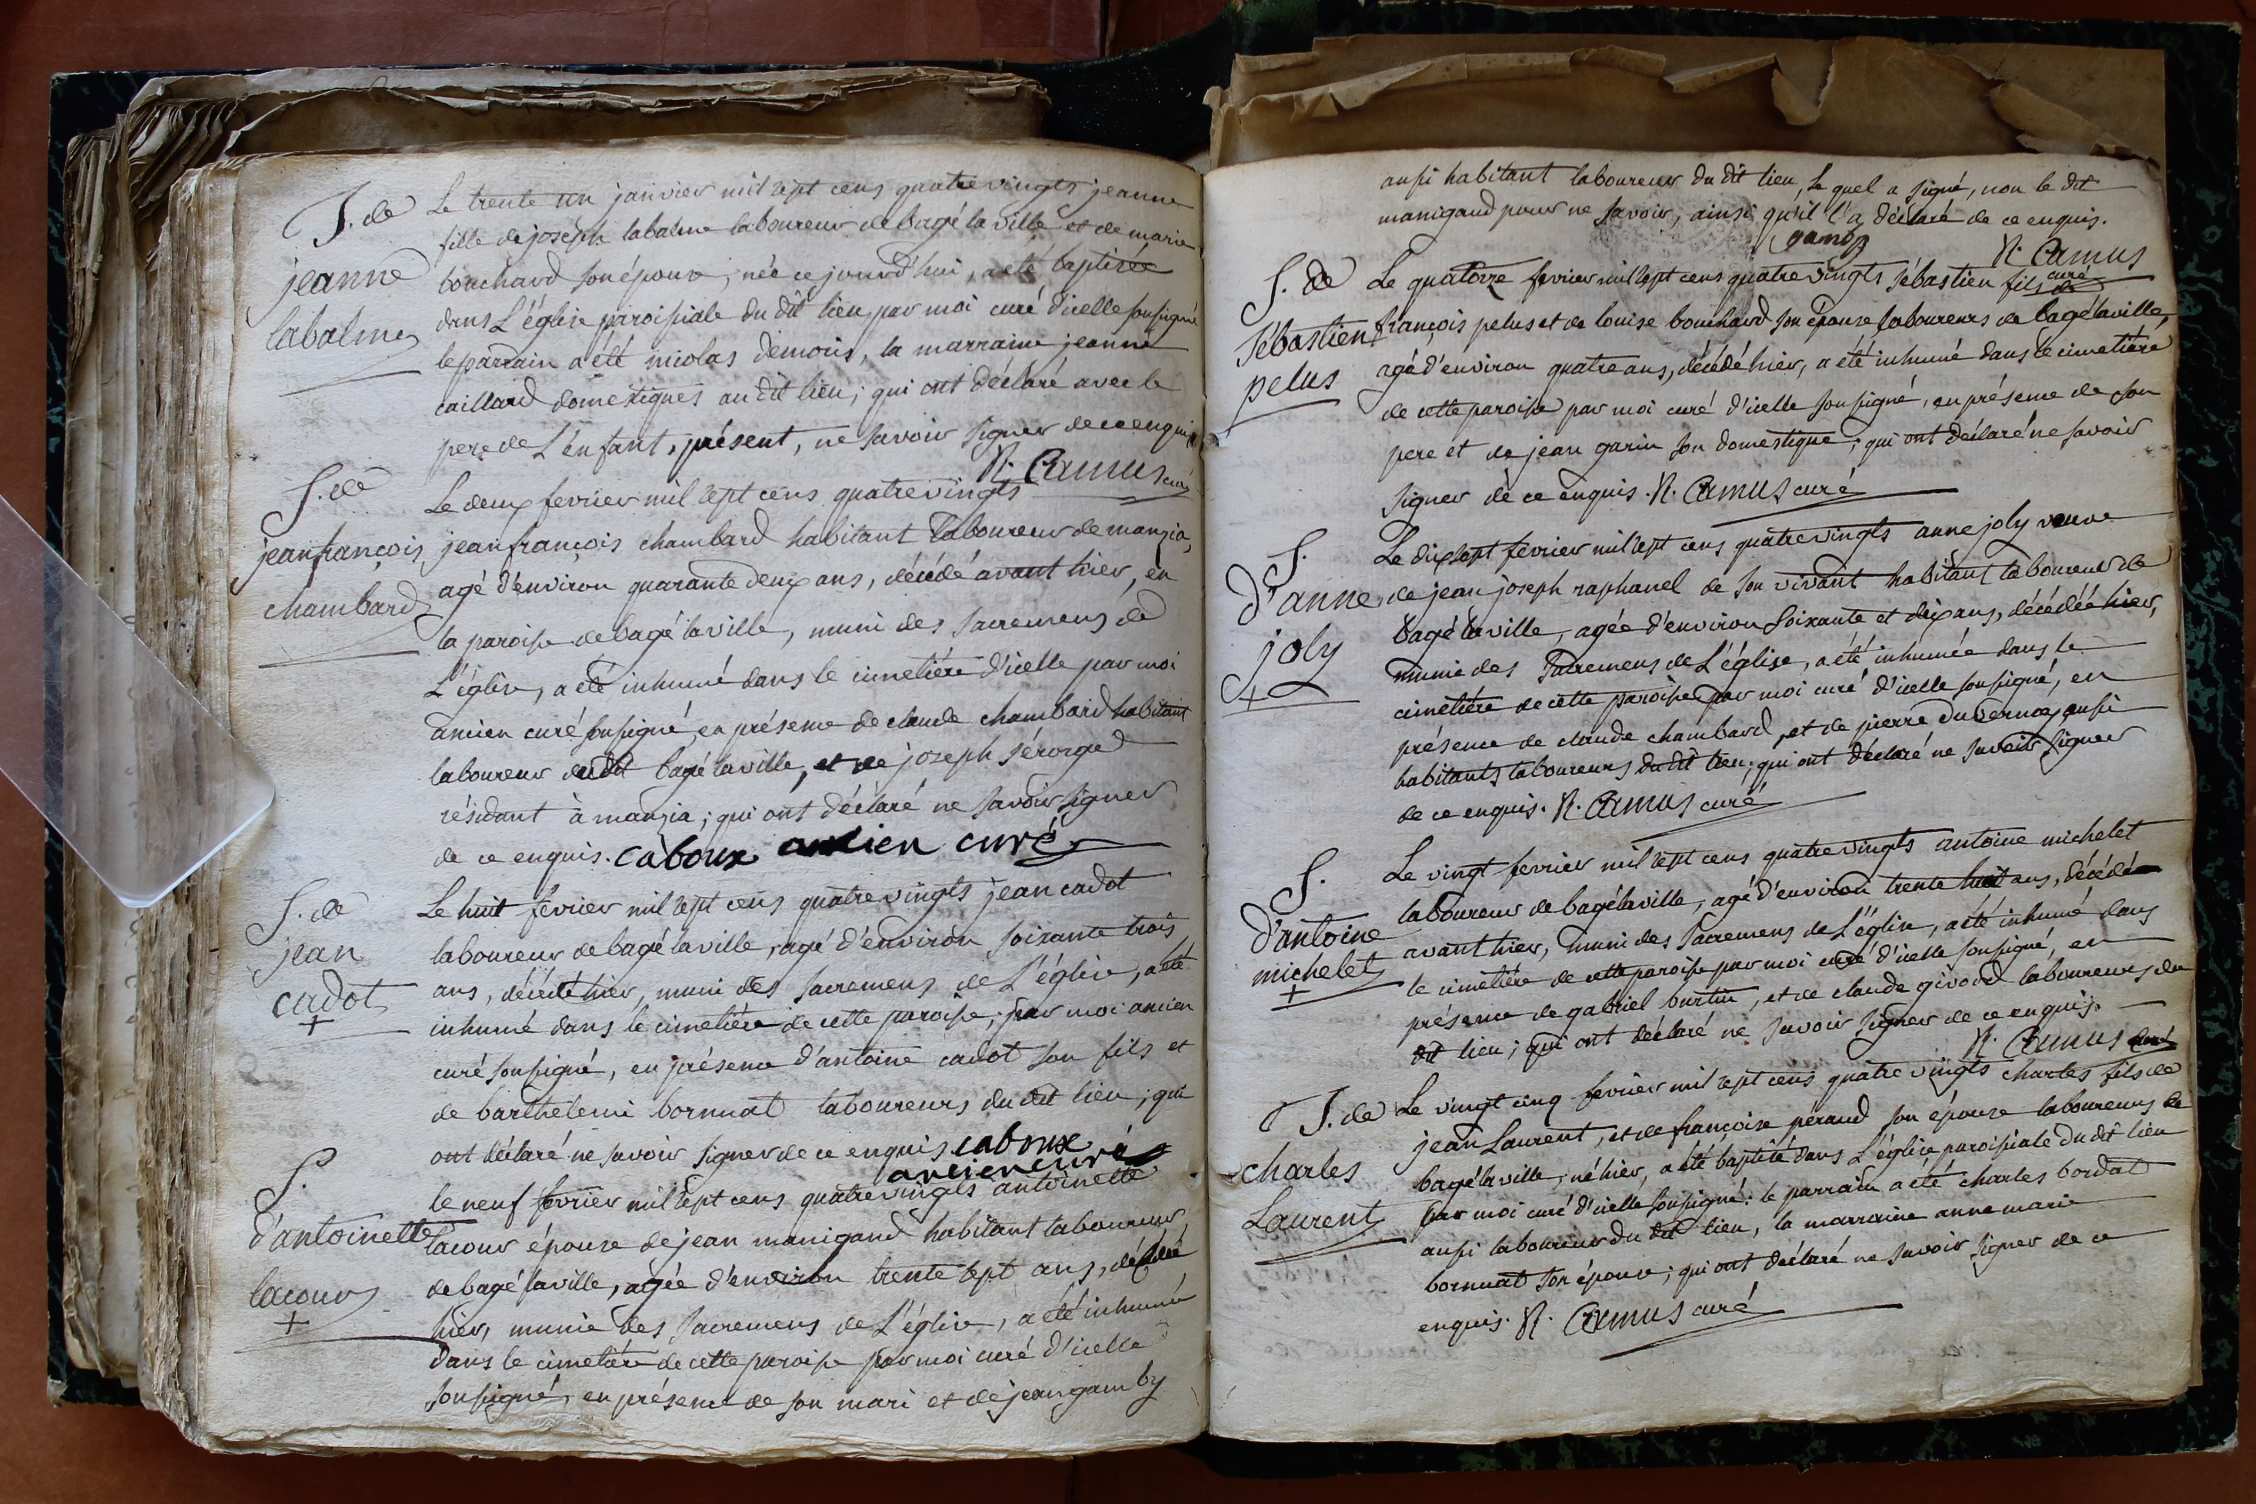 J. de
jeanne
labalme
Le trente un janvier mil sept cens quatre vingts jeanne
fille de joseph labalme laboureur de bagé la ville et de marie
bouchard son épouse, née ce jourd'hui, a été baptisée
dans L'église paroissiale du dit lieu par moi curé d'icelle soussigné
le parrain a été nicolas demoris, la marraine jeanne
caillard domestiques au dit lieu; qui ont déclaré avec le
pere de L'enfant, présent, ne savoir signer de ce enquis
N. Camus curé
S. de
jean françois
chambard
Le deux fevrier mil sept cens quatre vingts
jean françois chambard habitant laboureur de manzia,
agé d'environ quarante deux ans, décédé avant hier, en
la paroisse de bagé la ville, muni des sacremens de
L'église, a été inhumé dans le cimetière d'icelle par moi
ancien curé soussigné, en présence de claude chambard habitant
laboureur du dit bagé la ville, et de joseph séroge
résidant à manzia; qui ont déclaré ne savoir signer
de ce enquis. caboux ancien curé
S. de
jean
cadot
+
Le huit fevrier mil sept cens quatre vingts jean cadot
laboureur de bagé la ville, agé d'environ soixante trois
ans, décédé hier, muni des sacremens de L'église, a été
inhumé dans le cimetière de cette paroisse, par moi ancien
curé soussigné, en présence d'antoine cadot son fils et
de barthelemi bornuat laboureurs du dit lieu; qui
ont déclaré ne savoir signer de ce enquis caboux
ancien curé
S.
d'antoinette
lacour
+
le neuf fevrier mil sept cens quatre vingts antoinette
lacour épouse de jean manigand habitant laboureur
de bagé la ville, agée d'environ trente sept ans, décédée
hier, munie des sacremens de L'église, a été inhumée
dans le cimetière de cette paroisse par moi curé d'icelle
soussigné, en présence de son mari et de jean gamby
aussi habitant laboureur du dit lieu, le quel a signé, non le dit
manigand pour ne savoir, ainsi qu'il l'a déclaré de ce enquis.
N. Camus
curé
S. de
Sébastien
pelus
Le quatorze fevrier mil sept cens quatre vingts sébastien fils de
françois pelus et de louise bouchard son épouse laboureurs de bagé la ville,
agé d'environ quatre ans, décédé hier, a été inhumé dans le cimetière
de cette paroisse par moi curé d'icelle soussigné, en présence de son
pere et de jean garin son domestique; qui ont déclaré ne savoir
signer de ce enquis. N. Camus curé
S.
d'anne
joly
+
Le dix sept fevrier mil sept cens quatre vingts anne joly veuve
de jean joseph raphanel de son vivant habitant laboureur de
bagé la ville, agée d'environ soixante et dix ans, décédée hier,
munie des sacremens de L'église, a été inhumée dans le
cimetière de cette paroisse par moi curé d'icelle soussigné, en
présence de claude chambard, et de pierre duvernay aussi
habitants laboureurs du dit lieu; qui ont déclaré ne savoir signer
de ce enquis. N. Camus curé
S.
d'antoine
michelet
+
Le vingt fevrier mil sept cens quatre vingts antoine michelet
laboureur de bagé la ville, agé d'environ trente huit ans, décédé
avant hier, muni des sacremens de L'église, a été inhumé dans
le cimetière de cette paroisse par moi curé d'icelle soussigné, en
présence de gabriel burtin, et de claude givord laboureurs du
dit lieu; qui ont déclaré ne savoir signer de ce enquis.
N. Camus curé
J. de
charles
Laurent
Le vingt cinq fevrier mil sept cens quatre vingts charles fils de
jean Laurent, et de françoise peraud son épouse laboureurs de
bagé la ville, né hier, a été baptisé dans L'église paroissiale du dit lieu
par moi curé d'icelle soussigné: le parrain a été charles bordat
aussi laboureur du dit lieu, la marraine anne marie
bornuat son épouse; qui ont déclaré ne savoir signer de ce
enquis. N. Camus curé